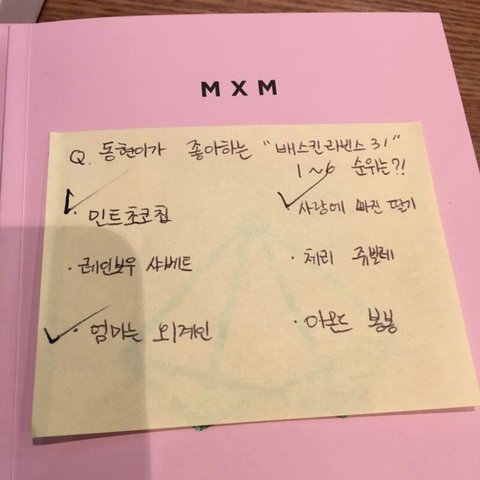 MXM
Q. 동현이가 좋아하는 "배스킨라빈스 31"
1~6 순위는?!
· 민트초코칩
· 사랑에 빠진 딸기
· 레인보우 샤베트
· 체리 쥬빌레
· 엄마는 외계인
· 아몬드 봉봉